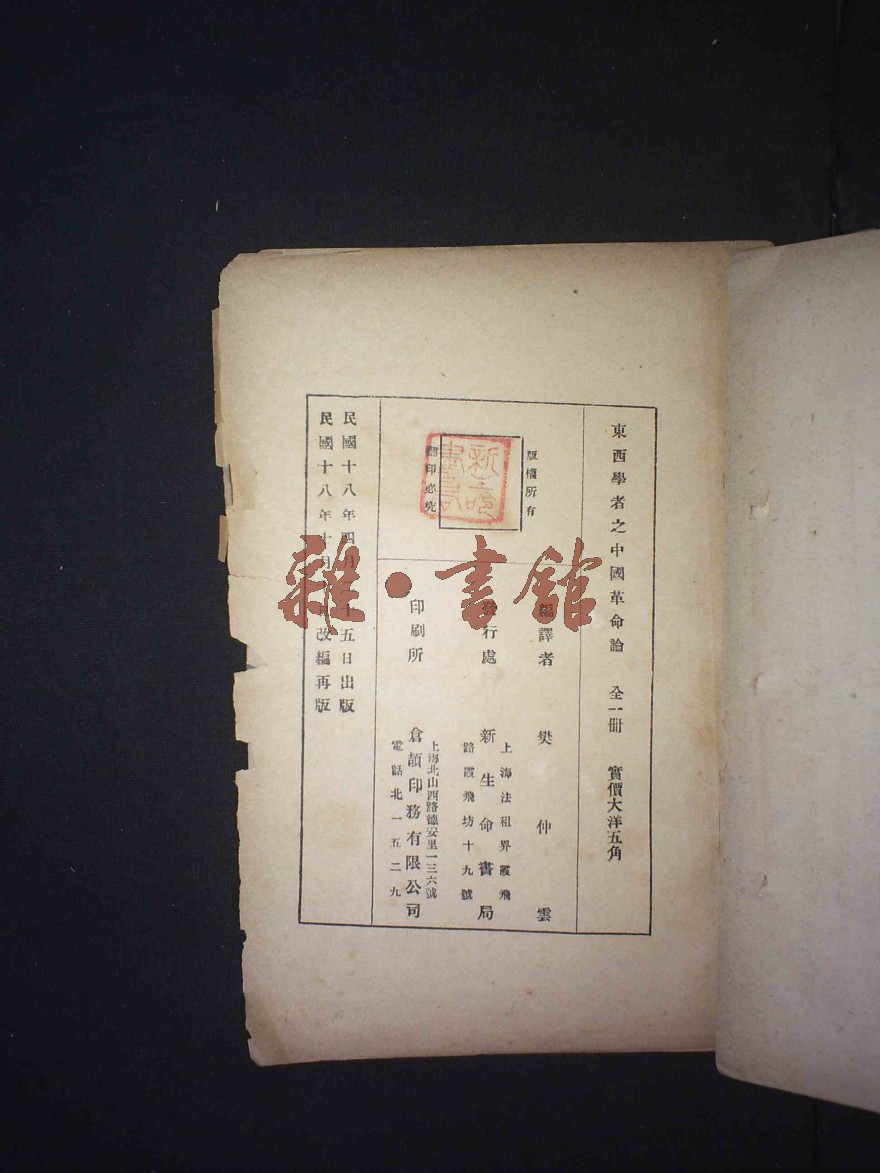 東西學者之中國革命論 全一冊 實價大洋五角
版權所有
翻印必究
新生命書局
編譯者 樊仲雲
發行處 新生命書局
上海法租界霞飛
路霞飛坊十九號
印刷所 倉頡印務有限公司
上海北山西路德安里一三六號
電話北一五二九
民國十八年四月十五日出版
民國十八年十月改編再版
雜·書館